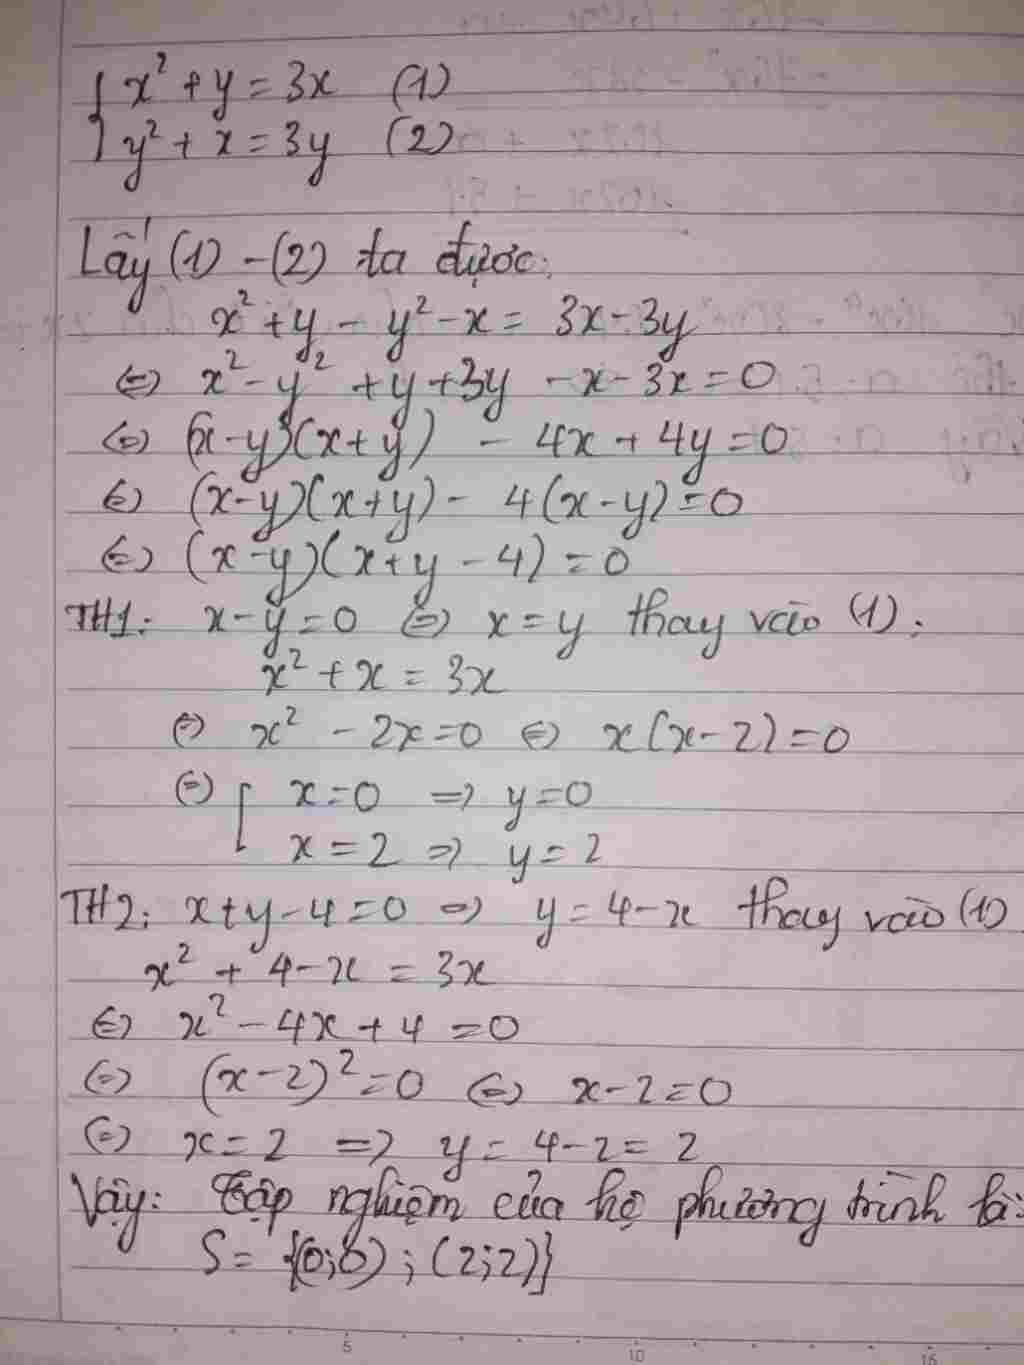 { x² + y = 3x (1)
y² + x = 3y (2)
Lấy (1) - (2) ta được:
x² + y - y² - x = 3x - 3y
⇔ x² - y² + y + 3y - x - 3x = 0
⇔ (x - y)(x + y) - 4x + 4y = 0
⇔ (x - y)(x + y) - 4(x - y) = 0
⇔ (x - y)(x + y - 4) = 0
TH1: x - y = 0 ⇔ x = y thay vào (1):
x² + x = 3x
⇔ x² - 2x = 0 ⇔ x(x - 2) = 0
⇔ [ x = 0 ⇒ y = 0
x = 2 ⇒ y = 2
TH2: x + y - 4 = 0 ⇒ y = 4 - x thay vào (1)
x² + 4 - x = 3x
⇔ x² - 4x + 4 = 0
⇔ (x - 2)² = 0 ⇔ x - 2 = 0
⇔ x = 2 ⇒ y = 4 - 2 = 2
Vậy: Tập nghiệm của hệ phương trình là:
S = {(0;0); (2;2)}
5 10 15